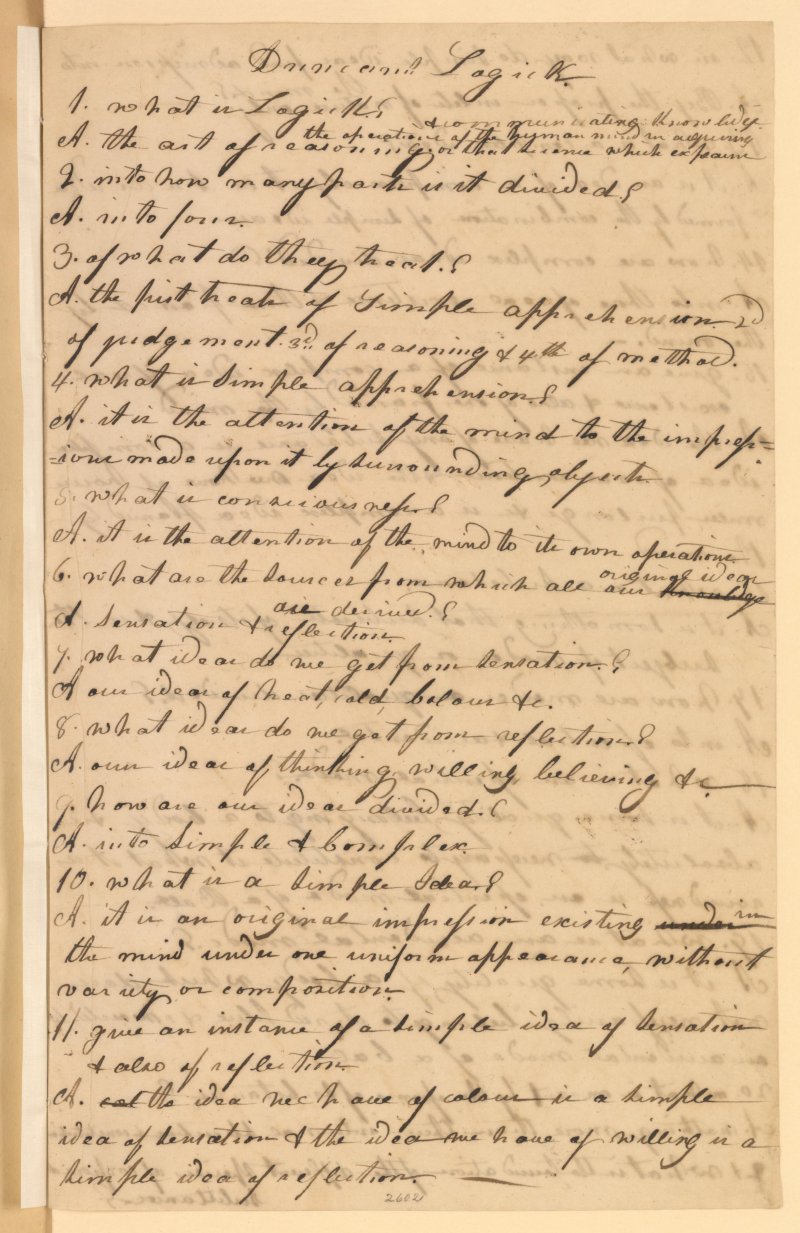 Duncan's Logick.
1. what is Logick?
& communicating knowledge.
the operations of the human mind in acquiring
A. the art of reasoning, or that science which explains
2. into how many parts is it divided?
A. into four.
3. of what do they treat.?
A. the first treats of Simple apprehension. 2d
of judgement. 3d. of reasoning & 4th of method.
4. what is Simple apprehension.?
A. it is the attention of the mind to the impress=
=ions made upon it by surrounding objects.
5. what is consciousness.?
A. it is the attention of the mind to its own operations.
original ideas
6. what are the sources from which all our knowledge
are derived.?
A. Sensation & reflection.
7. what ideas do we get from sensation.?
A our ideas of heat, cold, Colour &c.
8. what ideas do we get from reflection.?
A. our ideas of thinking, willing, believing &c.
9. how are our ideas divided.?
A. into Simple & Complex.
10. what is a simple Idea.?
A. it is an original impression existing under in
the mind under one uniform appearance, without
variety or composition.
11. give an instance of a simple idea of sensation
& also of reflection.
A. the idea we have of colour is a simple
idea of sensation & the idea we have of willing is a
simple idea of reflection.
2602